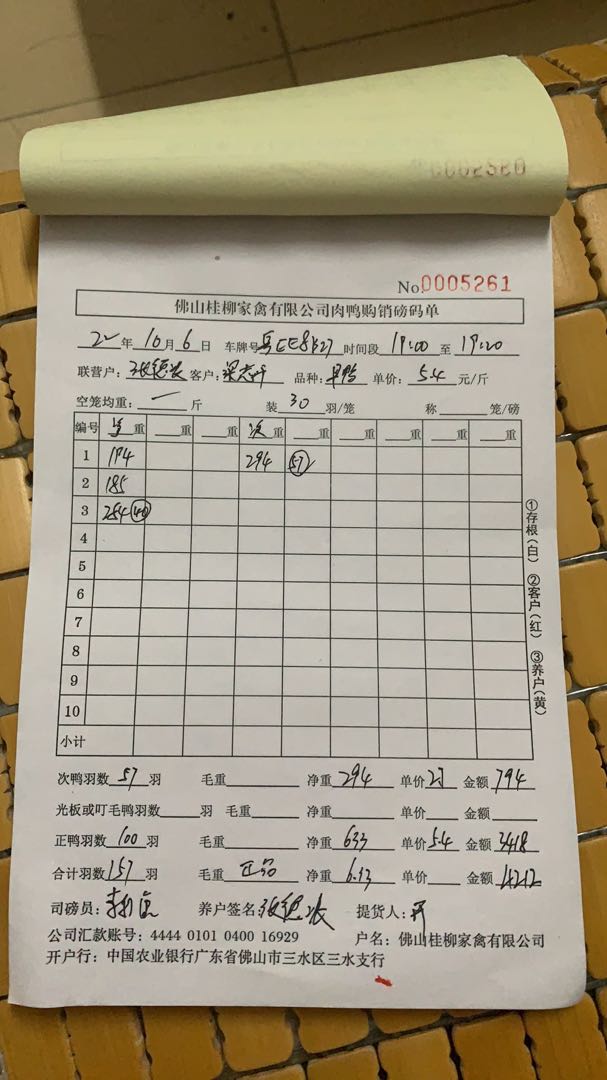 No.0005261
佛山桂柳家禽有限公司肉鸭购销磅码单
22年 10月 6日 车牌号 时间段 19:00 至 19:20
联营户: 客户: 品种: 单价: 5.4 元/斤
空笼均重: 一 斤 装 30 羽/笼 称 笼/磅
编号 重 重 重 次 重 重 重 重 重 重
1 194 294 57
2 185
3 254
4
5
6
7
8
9
10
小计
①存根(白) ②客户(红) ③养户(黄)
次鸭羽数 57 羽 毛重 净重 294 单价 金额 794
光板或叮毛鸭羽数 羽 毛重 净重 单价 金额
正鸭羽数 100 羽 毛重 净重 633 单价 5.4 金额 3418
合计羽数 157 羽 毛重 正品 净重 6.33 单价 金额 4212
司磅员: 养户签名: 提货人:
公司汇款账号: 4444 0101 0400 16929 户名: 佛山桂柳家禽有限公司
开户行: 中国农业银行广东省佛山市三水区三水支行